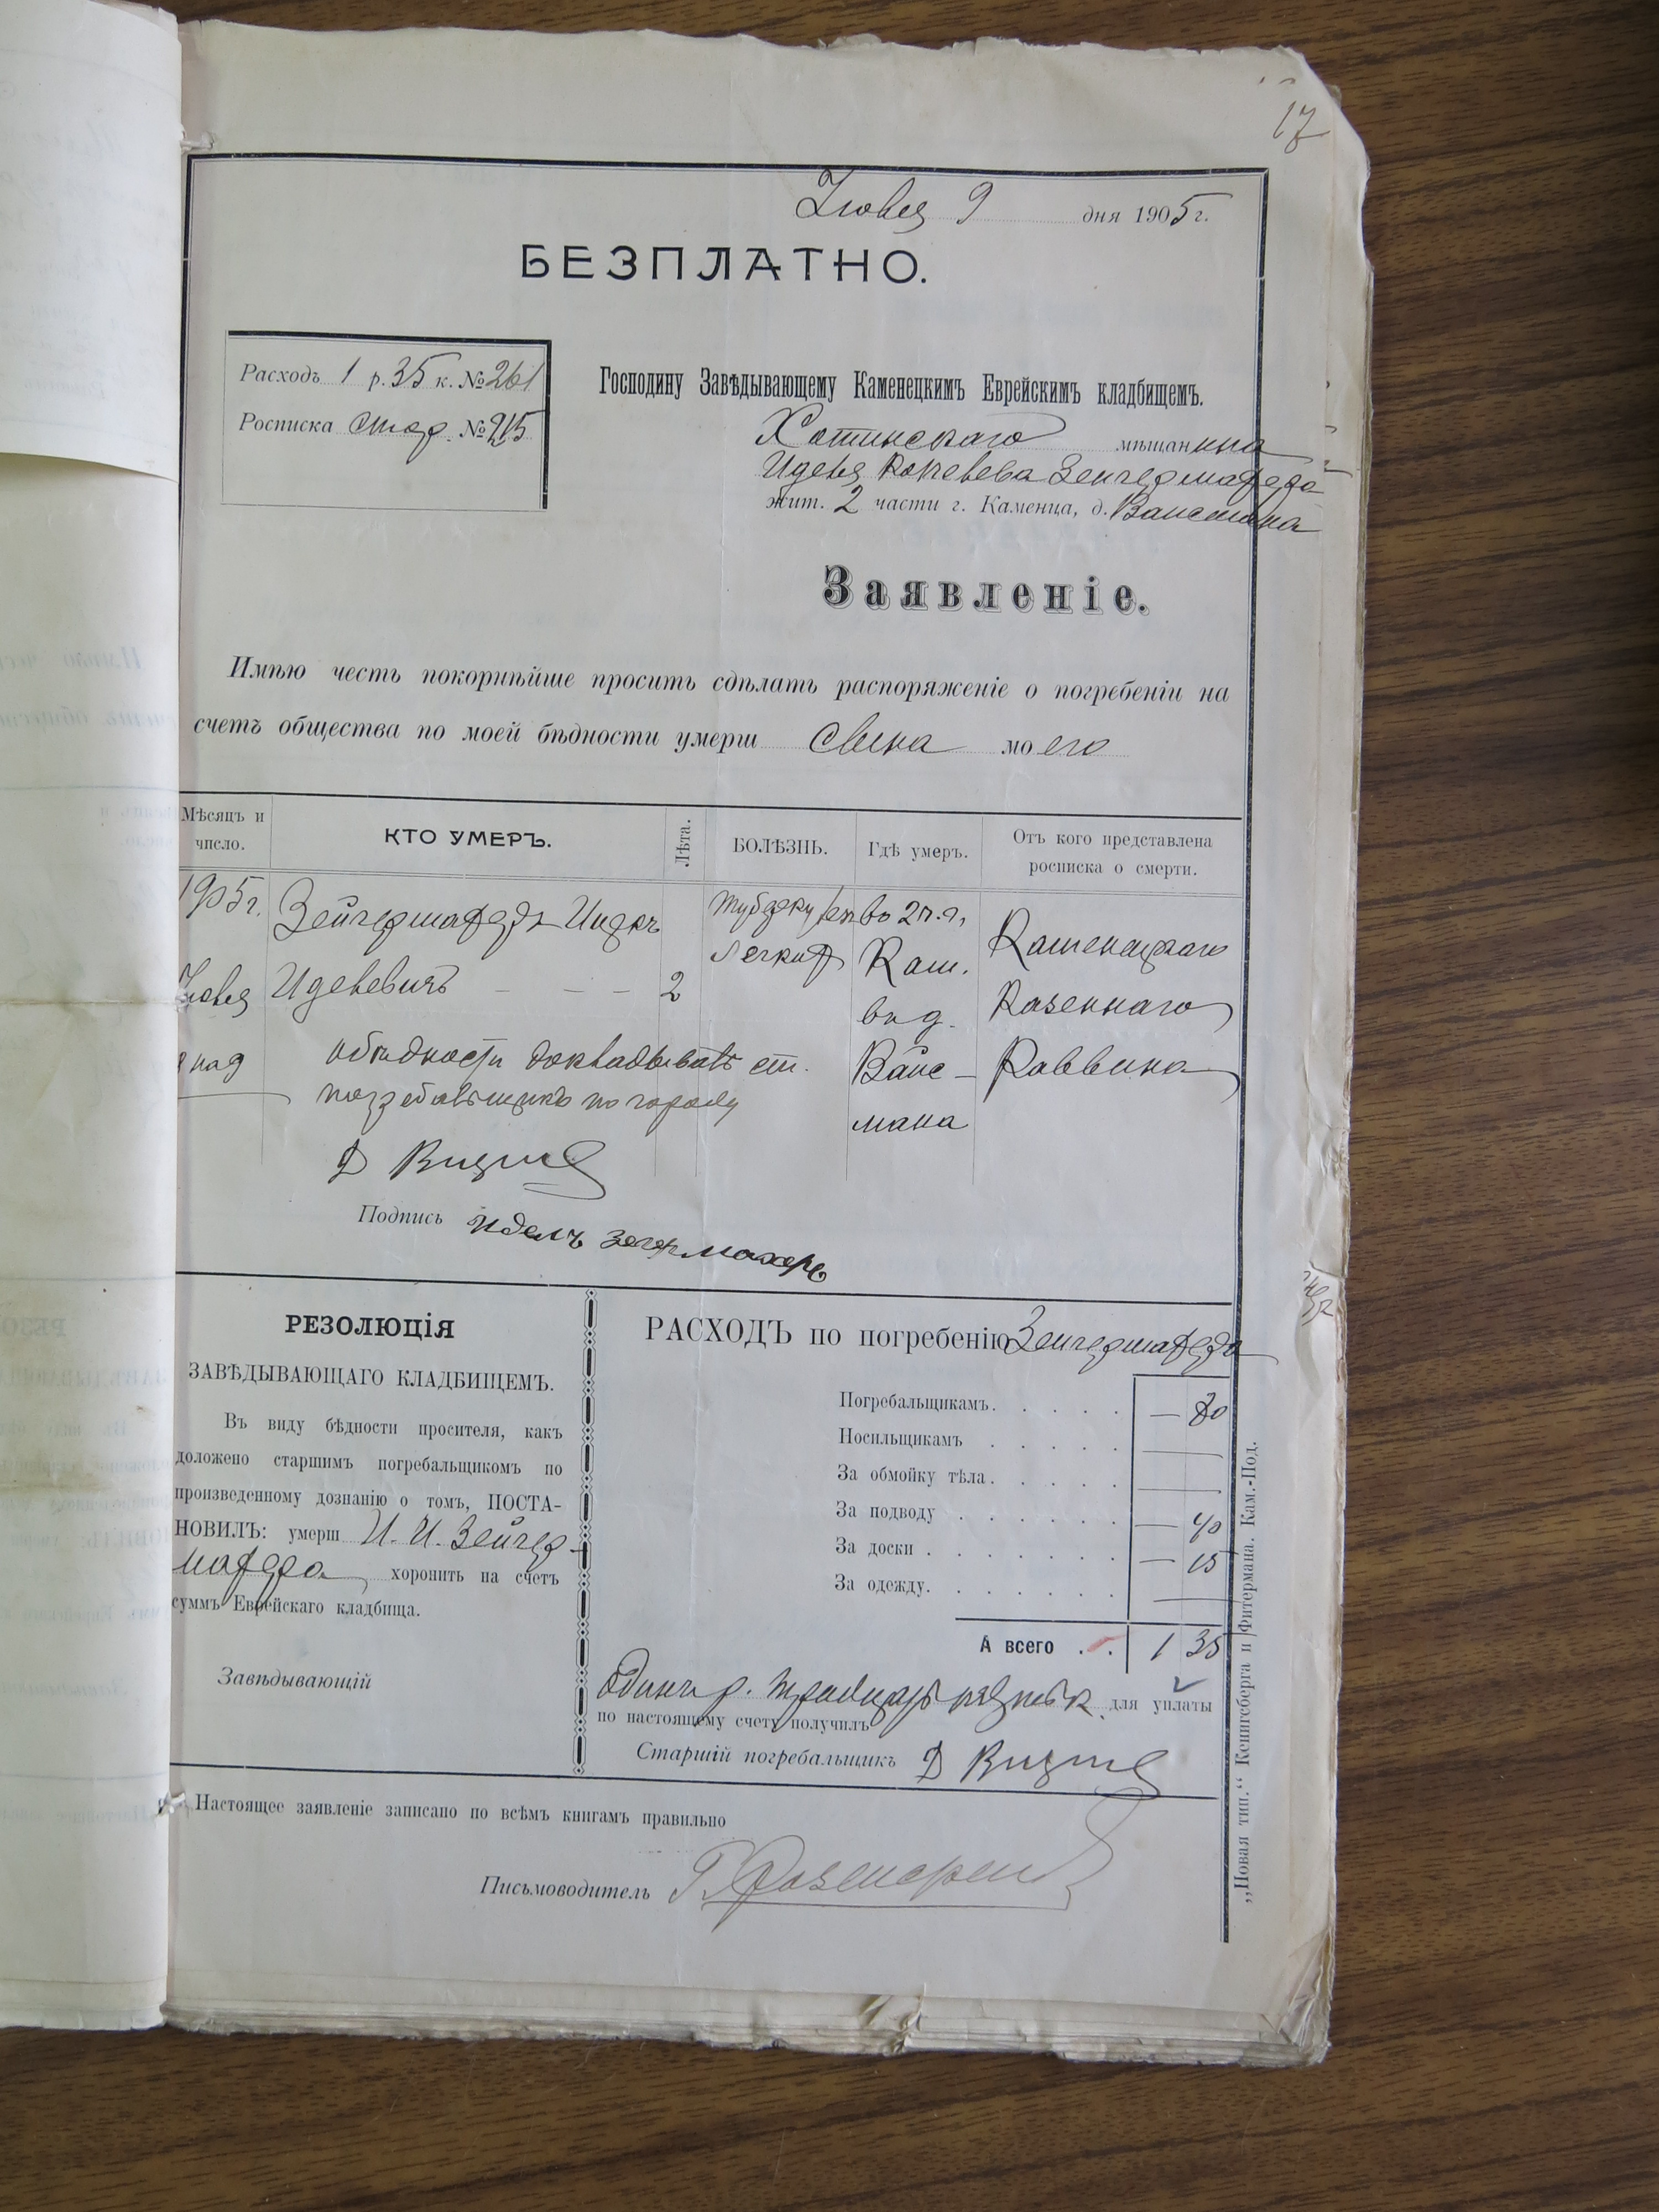 17
Іюля 9 дня 1905 г.
БЕЗПЛАТНО.
Расходъ 1 р. 35 к. № 261
Росписка стар. № 215
Господину Завѣдывающему Каменецкимъ Еврейскимъ кладбищемъ.
Хотинскаго мѣщанина
Иделя Зейгермахера
жит. 2 части г. Каменца, д. Вайсмана
Заявленіе.
Имѣю честь покорнѣйше просить сдѣлать распоряженіе о погребеніи на
счетъ общества по моей бѣдности умерш сына моего
Мѣсяцъ и число.
КТО УМЕРЪ.
Лѣта.
БОЛѢЗНЬ.
Гдѣ умеръ.
Отъ кого представлена росписка о смерти.
1905 г.
Іюля
на 9
Зейгермахеръ Ицекъ
Иделевичъ - - - 2
Туберкулезъ
легких
во 2 ч. г.
Кам.
в д.
Вайс-
мана
Каменецкаго
Казеннаго
Раввина
о бѣдности докладываетъ ст.
погребальщикъ по городу
Д
Подпись Идель Зегермахеръ
РЕЗОЛЮЦІЯ
ЗАВѢДЫВАЮЩАГО КЛАДБИЩЕМЪ.
Въ виду бѣдности просителя, какъ
доложено старшимъ погребальщикомъ по
произведенному дознанію о томъ, ПОСТА-
НОВИЛЪ: умерш И. И. Зейгер-
махера хоронить на счетъ
суммъ Еврейскаго кладбища.
Завѣдывающій
РАСХОДЪ по погребенію Зейгермахера
Погребальщикамъ. — 80
Носильщикамъ
За обмойку тѣла.
За подводу — 40
За доски — 15
За одежду.
А всего 1 35
Одинъ р. тридцать пять к. для уплаты
по настоящему счету получилъ
Старшій погребальщикъ Д
Настоящее заявленіе записано по всѣмъ книгамъ правильно
Письмоводитель
„Новая тип.“ Кенигсберга и Фитермана. Кам.-Под.